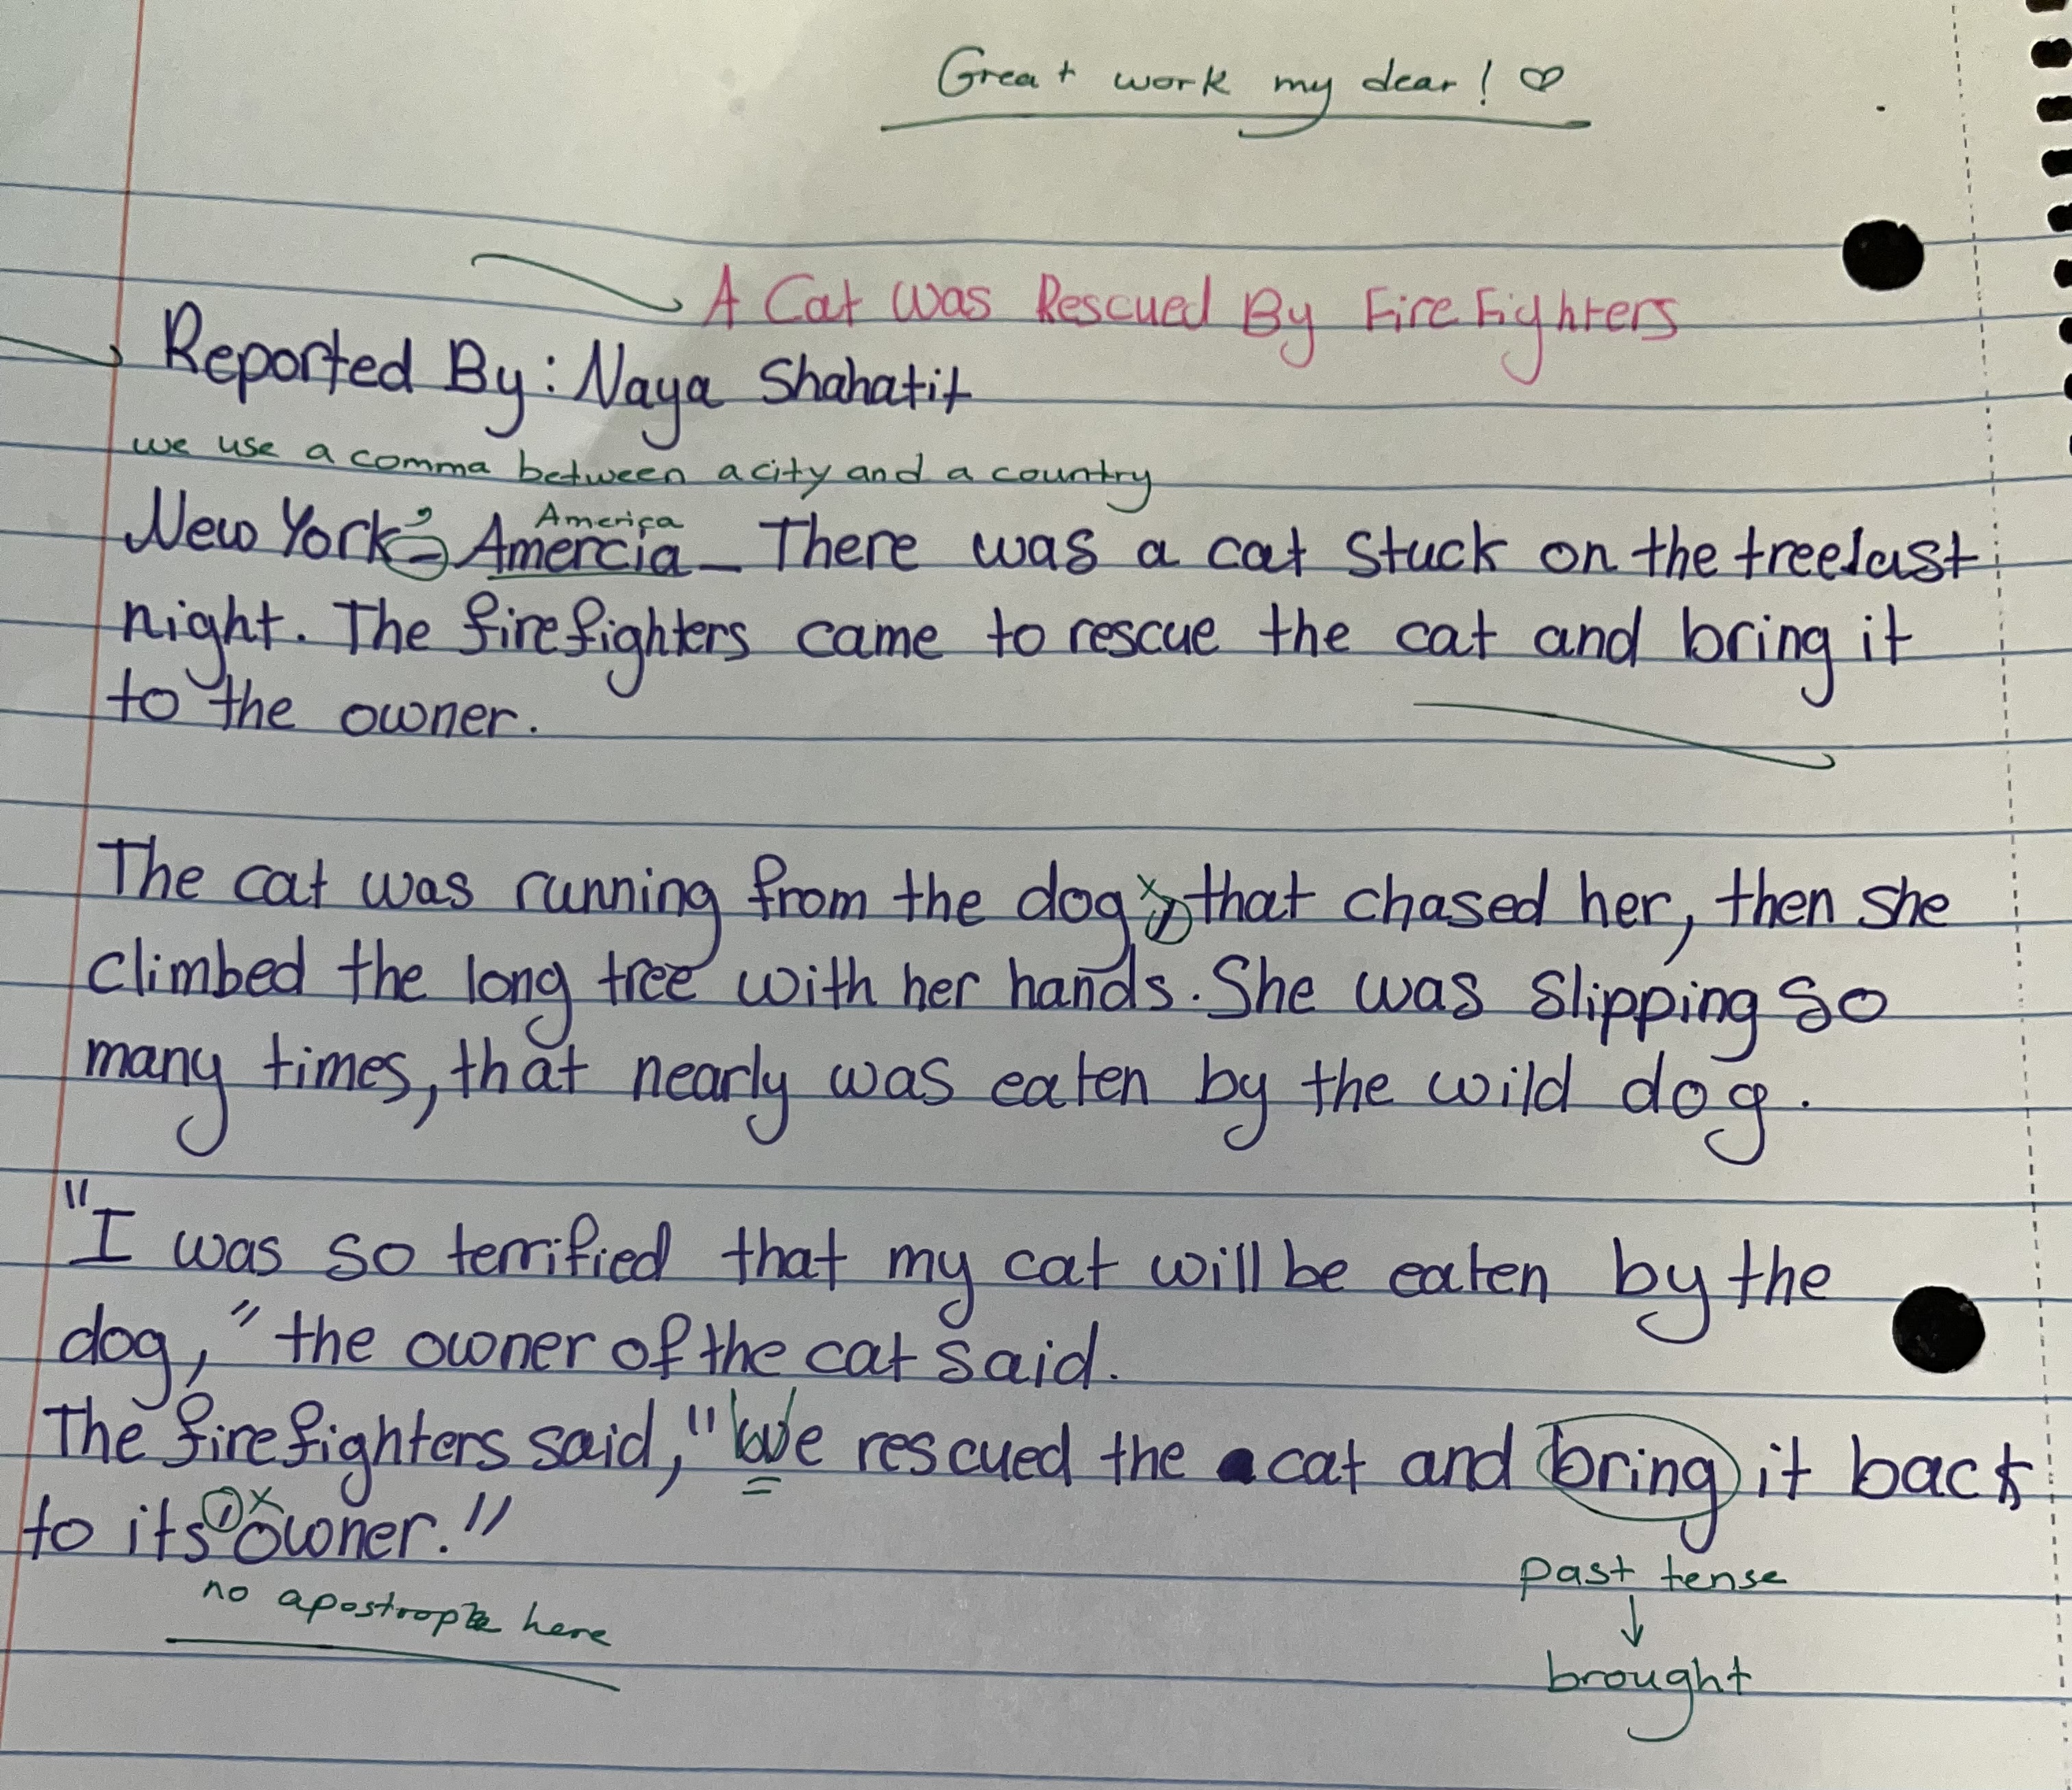 Great work my dear! ♡
A Cat Was Rescued By FireFighters
Reported By: Naya Shahatit
we use a comma between a city and a country
America
New York, - Amercia - There was a cat stuck on the tree last
night. The firefighters came to rescue the cat and bring it
to the owner.
The cat was running from the dog, x that chased her, then she
climbed the long tree with her hands. She was slipping so
many times, that nearly was eaten by the wild dog.
"I was so terrified that my cat will be eaten by the
dog," the owner of the cat said.
The firefighters said, "We rescued the cat and bring it back
to its' x owner."
past tense
no apostrophe here
↓
brought